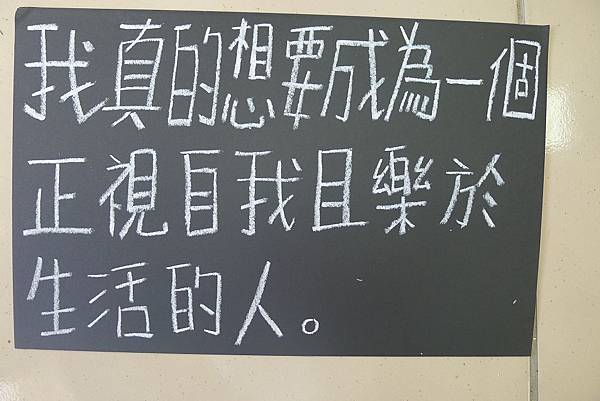 我真的想要成為一個
正視自我且樂於
生活的人。